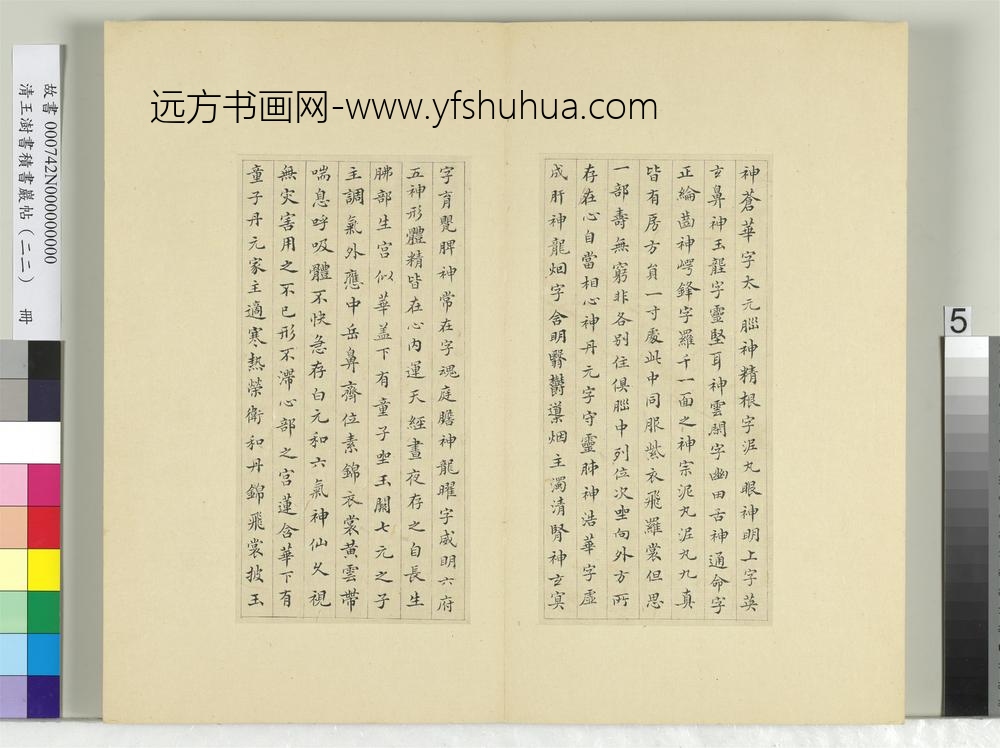 远方书画网-www.yfshuhua.com
故書 000742N000000000
清王澍書積書巖帖（二二） 冊
5
神蒼華字太元腦神精根字泥丸眼神明上字英
玄鼻神玉壟字靈堅耳神雲閑字幽田舌神通命字
正綸齒神崿鋒字羅千一面之神宗泥丸泥丸九真
皆有房方員一寸處此中同服紫衣飛羅裳但思
一部壽無窮非各別住俱腦中列位次坐向外方所
存在心自當相心神丹元字守靈肺神浩華字虛
成肝神龍烟字含明翳鬱導烟主濁清腎神玄冥
字育嬰脾神常在字魂庭膽神龍曜字威明六府
五神形體精皆在心內運天經晝夜存之自長生
肺部生宮似華盖下有童子坐玉闕七元之子
主調氣外應中岳鼻齊位素錦衣裳黃雲帶
喘息呼吸體不快急存白元和六氣神仙久視
無災害用之不已形不滯心部之宮蓮含華下有
童子丹元家主適寒熱榮衛和丹錦飛裳披玉